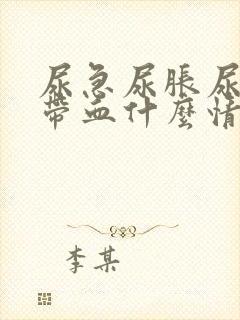 尿急尿脹尿
帶血什麼情
李某